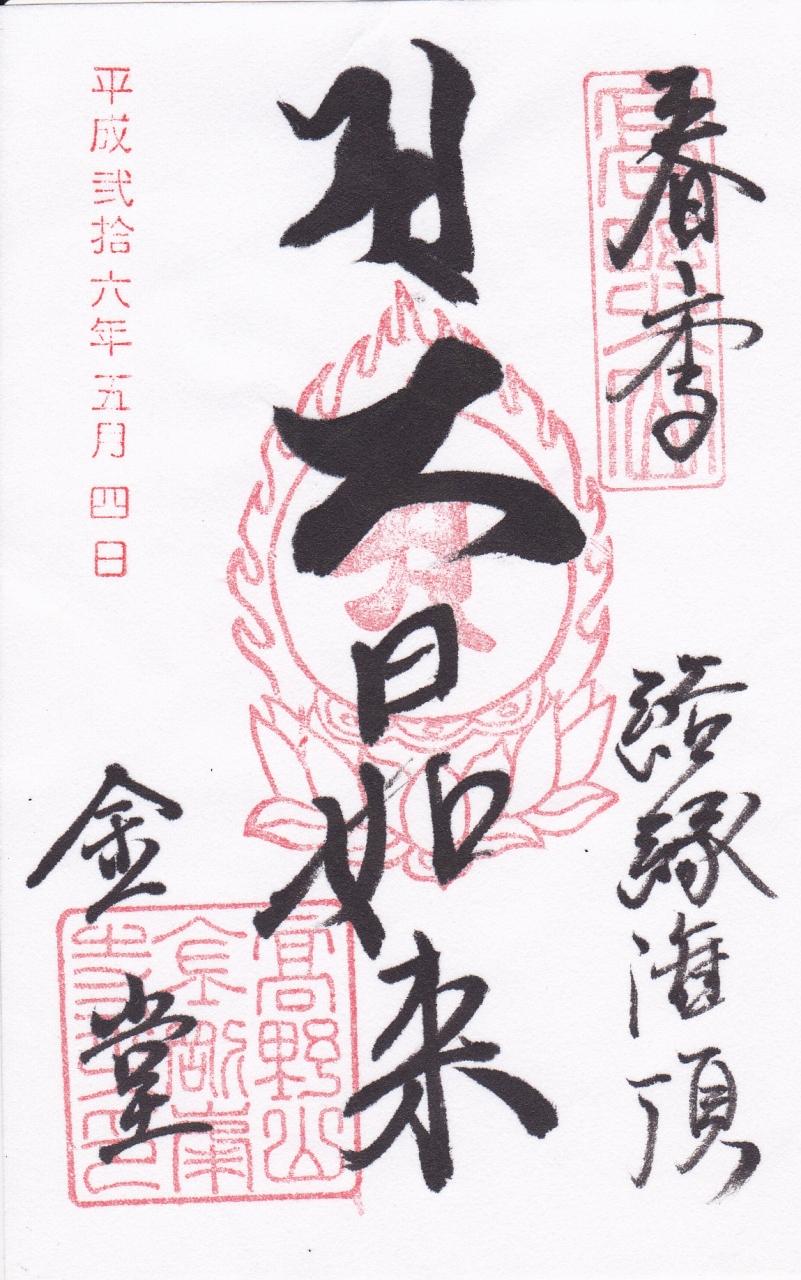 春季
結縁灌頂
大日如来
金堂
高野山
金剛峯
平成弐拾六年五月四日